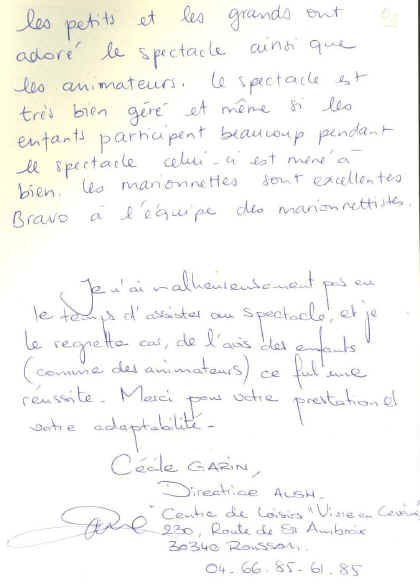 les petits et les grands ont
adoré le spectacle ainsi que
les animateurs. Le spectacle est
très bien géré et même si les
enfants participent beaucoup pendant
le spectacle celui-ci est mené à
bien. Les marionnettes sont excellentes
Bravo à l'équipe des marionnettistes.
Je n'ai malheureusement pas eu
le temps d'assister au spectacle, et je
le regrette car, de l'avis des enfants
(comme des animateurs) ce fut une
réussite. Merci pour votre prestation et
votre adaptabilité.
Cécile GARIN,
Directrice ALSH.
Centre de Loisirs "Vivre en Cévennes"
230, Route de St Ambroix
30340 Rousson.
04.66.85.61.85